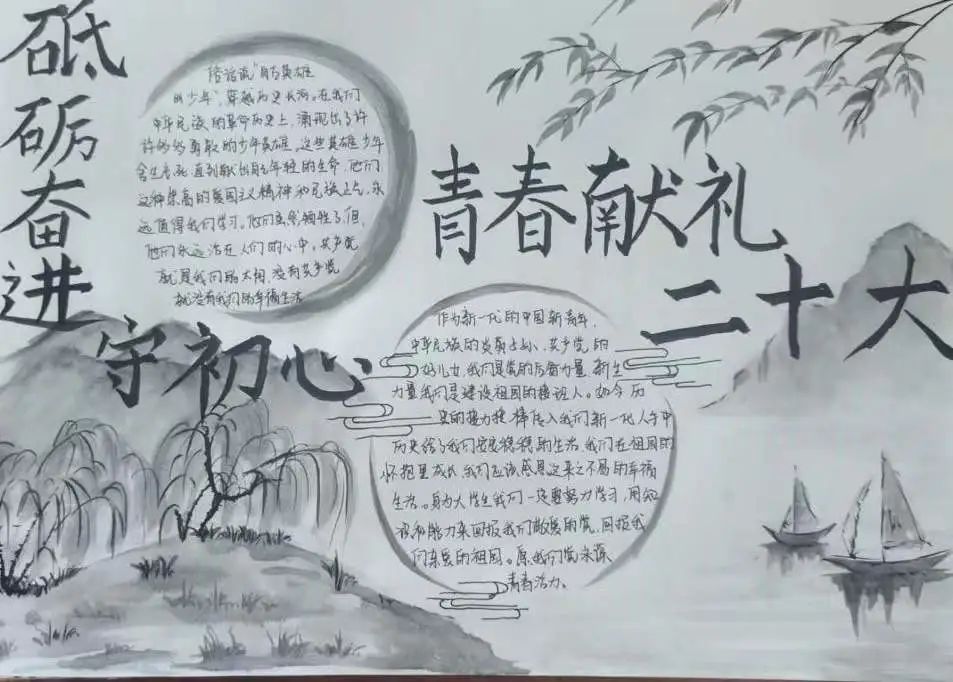 砥砺奋进
守初心
青春献礼
二十大
俗话说“自古英雄
出少年”,穿越历史长河,在我们
中华民族的革命历史上,涌现出了许
许多多勇敢的少年英雄,这些英雄少年
舍生忘死,直到献出自己年轻的生命,他们
这种崇高的爱国主义精神和民族正气,永
远值得我们学习。他们虽然牺牲了,但,
他们永远活在人们的心中。共产党
就是我们的太阳,没有共产党
就没有我们的幸福生活
作为新一代的中国新青年,
中华民族的炎黄子孙、共产党的
好儿女,我们是党的后备力量、新生
力量我们是建设祖国的接班人。如今历
史的接力棒传入我们新一代人手中
历史给了我们安定稳稳的生活,我们在祖国的
怀抱里成长,我们应该感恩这来之不易的幸福
生活。身为大学生我们一定要努力学习,用知
识和能力来回报我们敬爱的党,回报我
们亲爱的祖国。愿我们党永葆
青春活力。